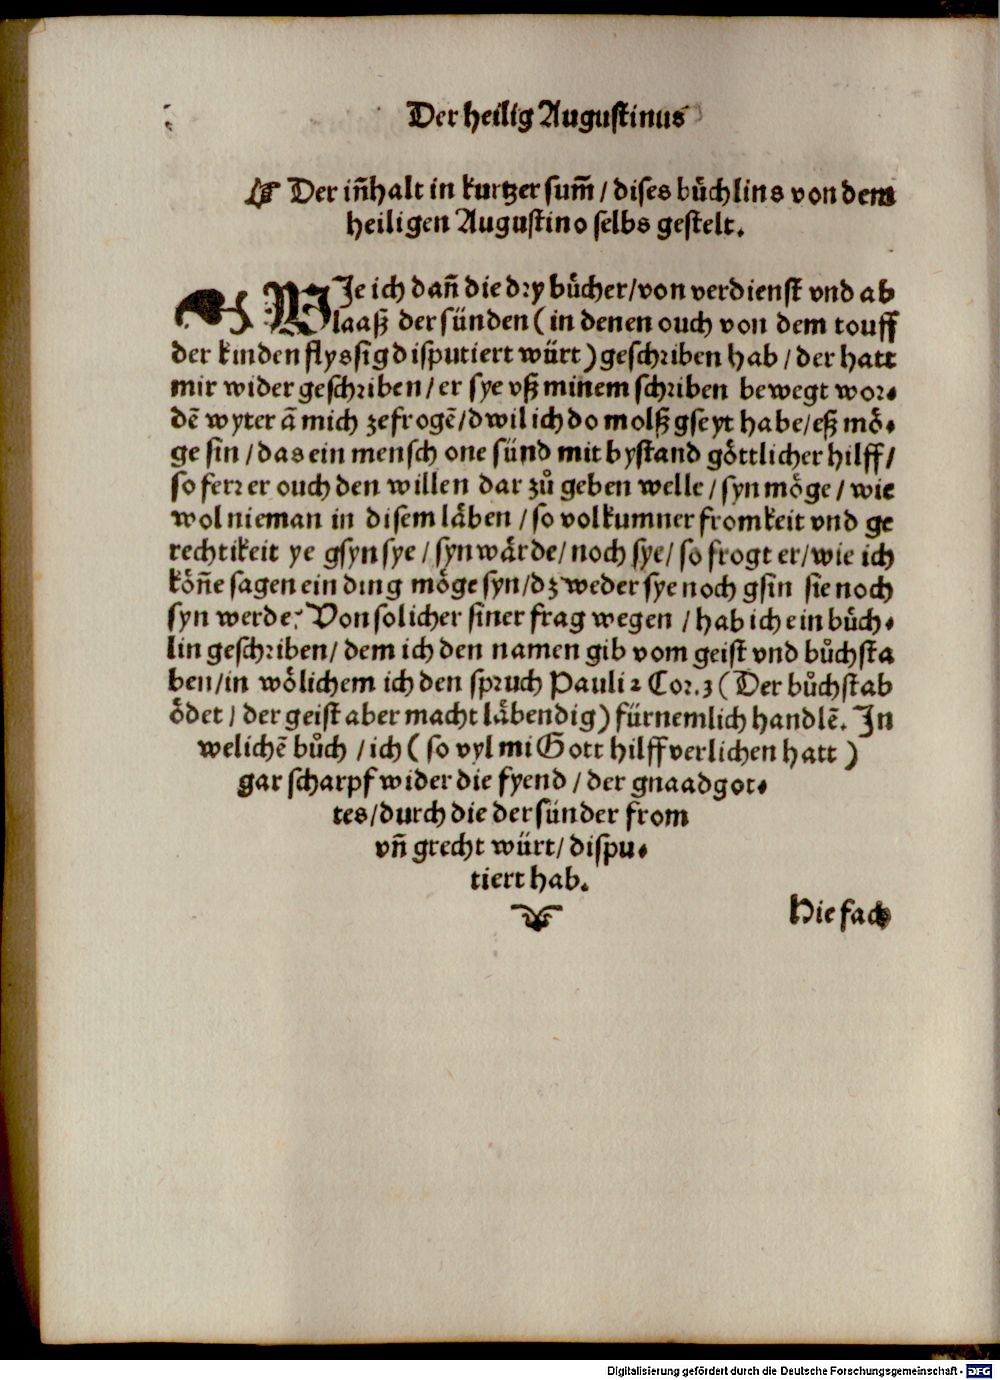 Der heilig Augustinus
☞ Der iñhalt in kurtzer sum̃ / dises bůchlins von dem
heiligen Augustino selbs gestelt.
WJe ich dañ die dry bůcher/von verdienst vnd ab
laaß der sünden (in denen ouch von dem touff
der kinden flyssig disputiert würt) geschriben hab / der hatt
mir wider geschriben / er sye vß minem schriben bewegt wor⸗
dẽ wyter ã mich zefrogẽ/dwil ich do molß gseyt habe/eß mö⸗
ge sin / das ein mensch one sünd mit bystand göttlicher hilff/
so ferr er ouch den willen dar zů geben welle / syn möge / wie
wol nieman in disem läben / so volkumner fromkeit vnd ge
rechtikeit ye gsyn sye / syn wärde/ noch sye/ so frogt er/wie ich
köñe sagen ein ding möge syn/dz weder sye noch gsin sie noch
syn werde? Von solicher siner frag wegen / hab ich ein bůch⸗
lin geschriben/ dem ich den namen gib vom geist vnd bůchsta
ben/in wölichem ich den spruch Pauli 2 Cor.3 (Der bůchstab
ödet / der geist aber macht läbendig) fürnemlich handlẽ. Jn
welichẽ bůch / ich ( so vyl mi Gott hilff verlichen hatt )
gar scharpf wider die fyend / der gnaad got⸗
tes/durch die der sünder from
vñ grecht würt/ dispu⸗
tiert hab.
Hie fach
Digitalisierung gefördert durch die Deutsche Forschungsgemeinschaft - DFG